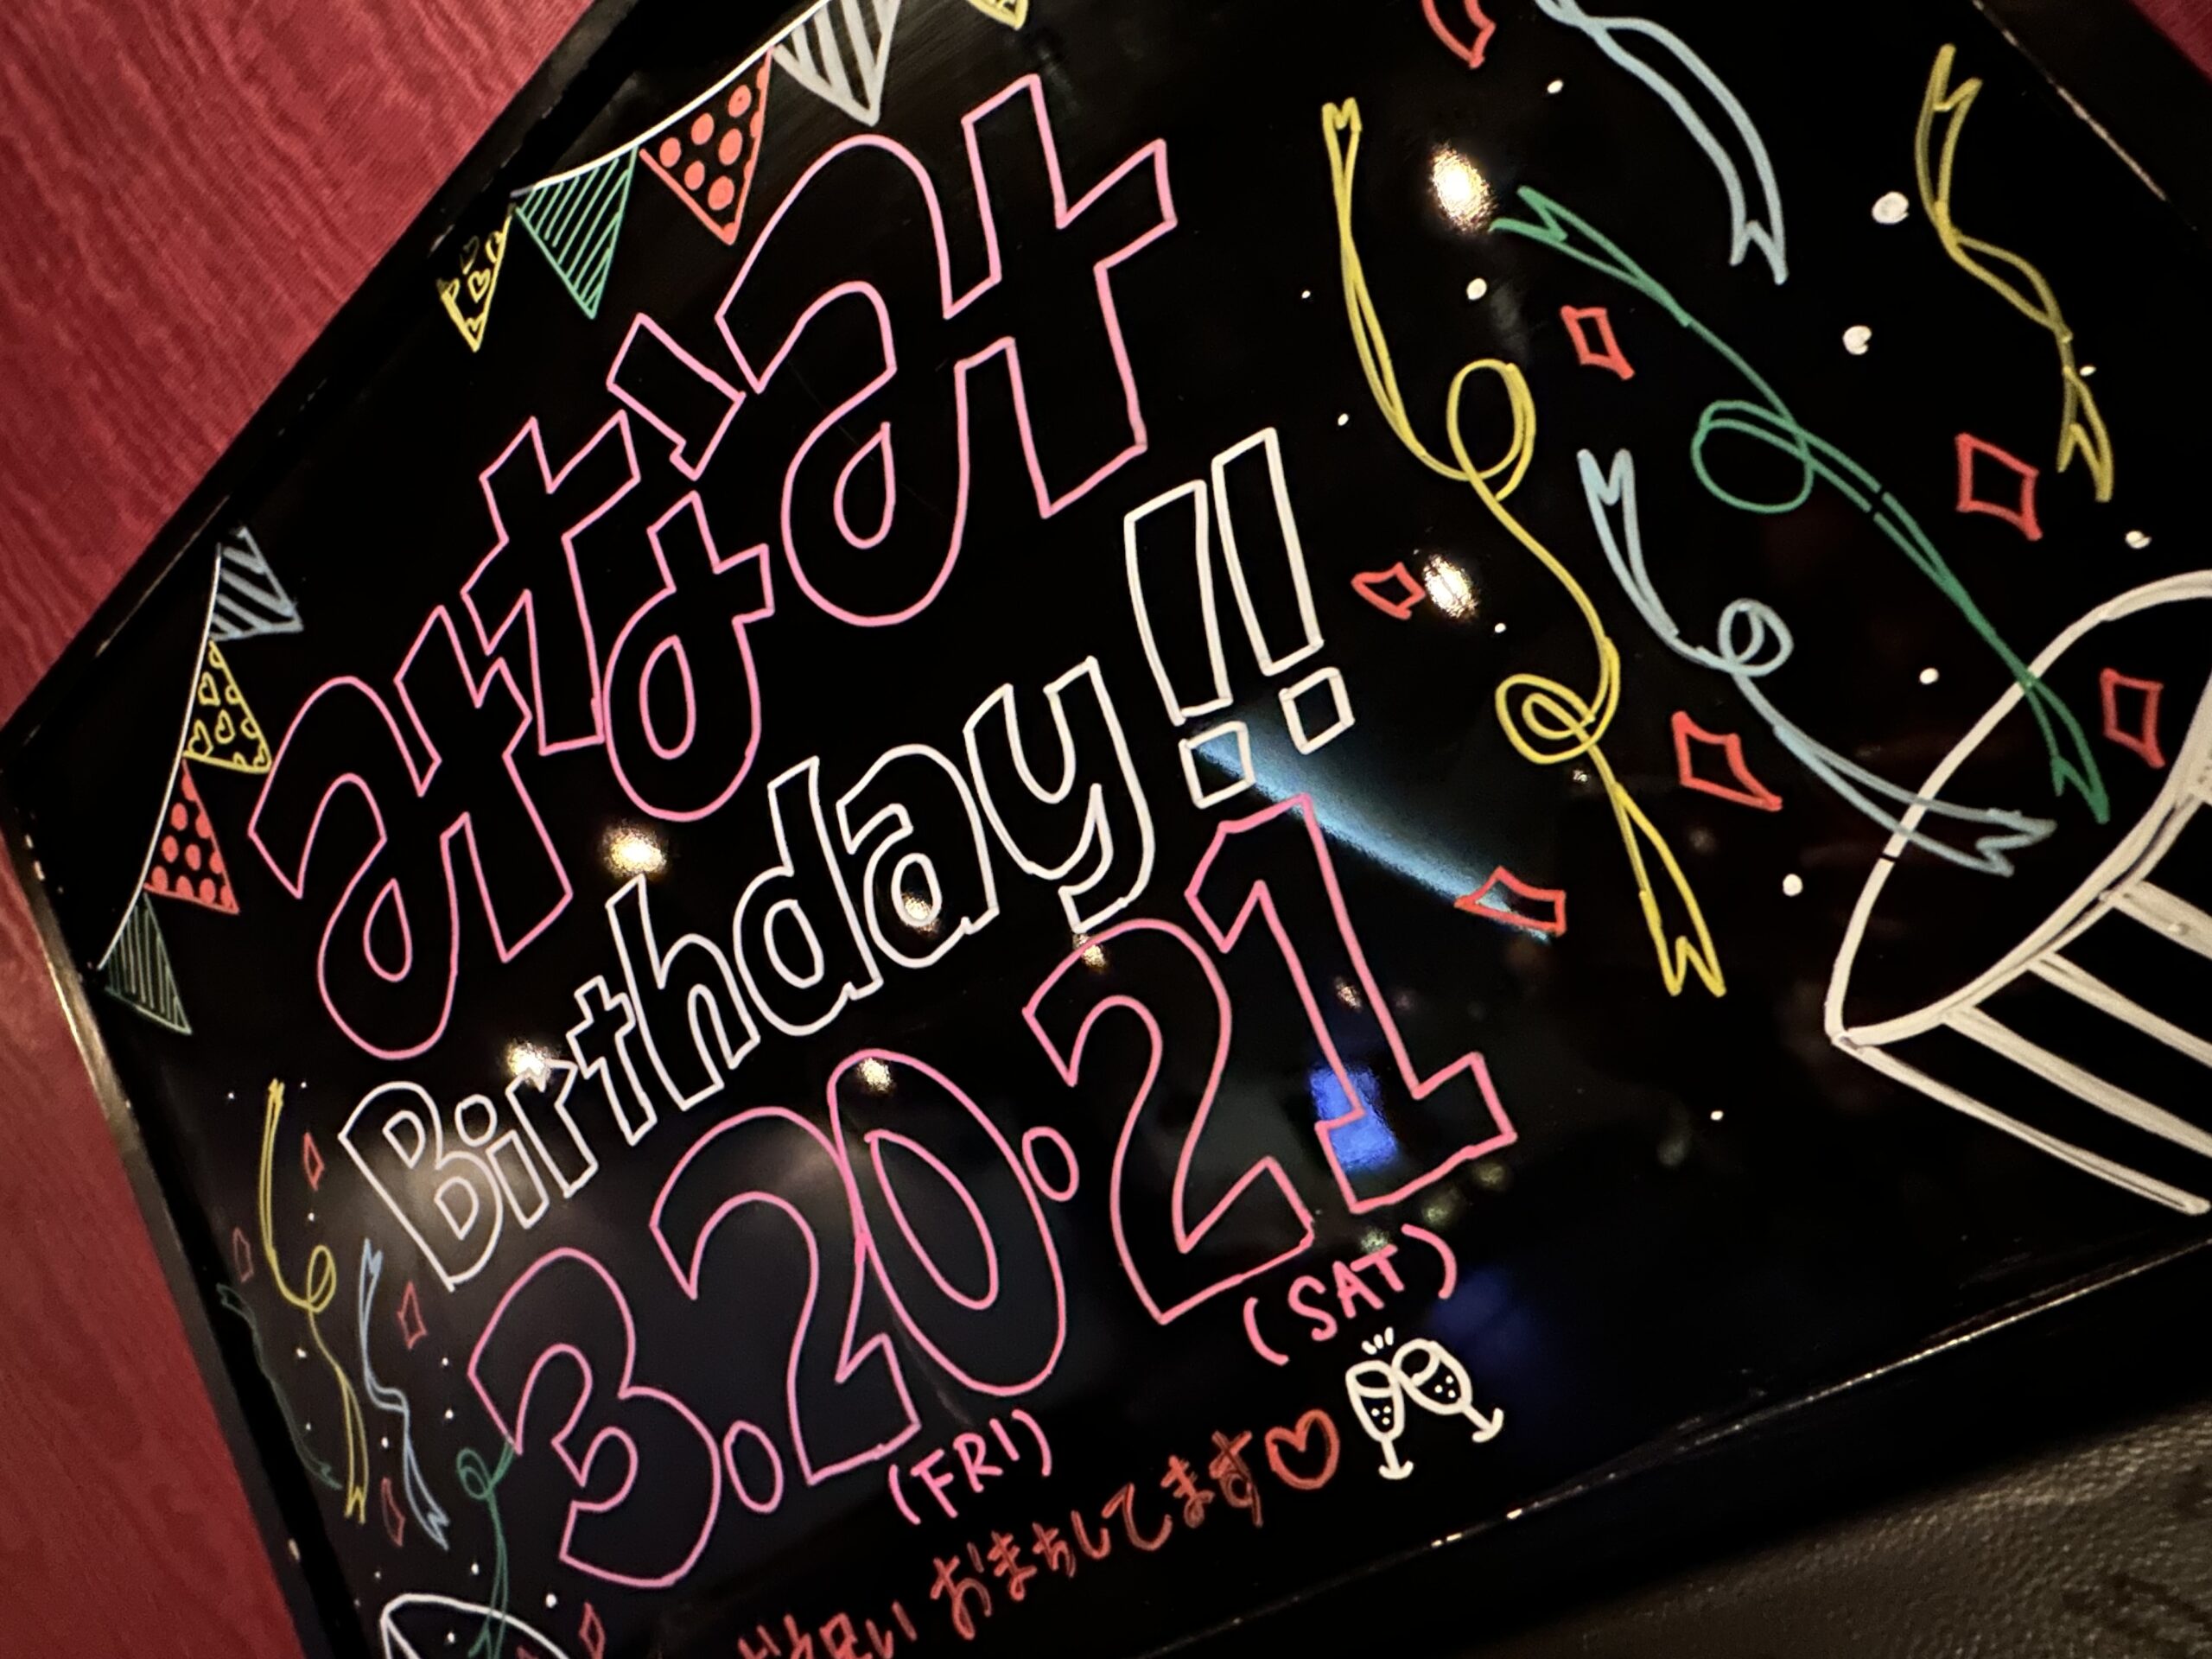 みなみ
Birthday!!
3.20.21
(FRI) (SAT)
お祝いおまちしてます♡